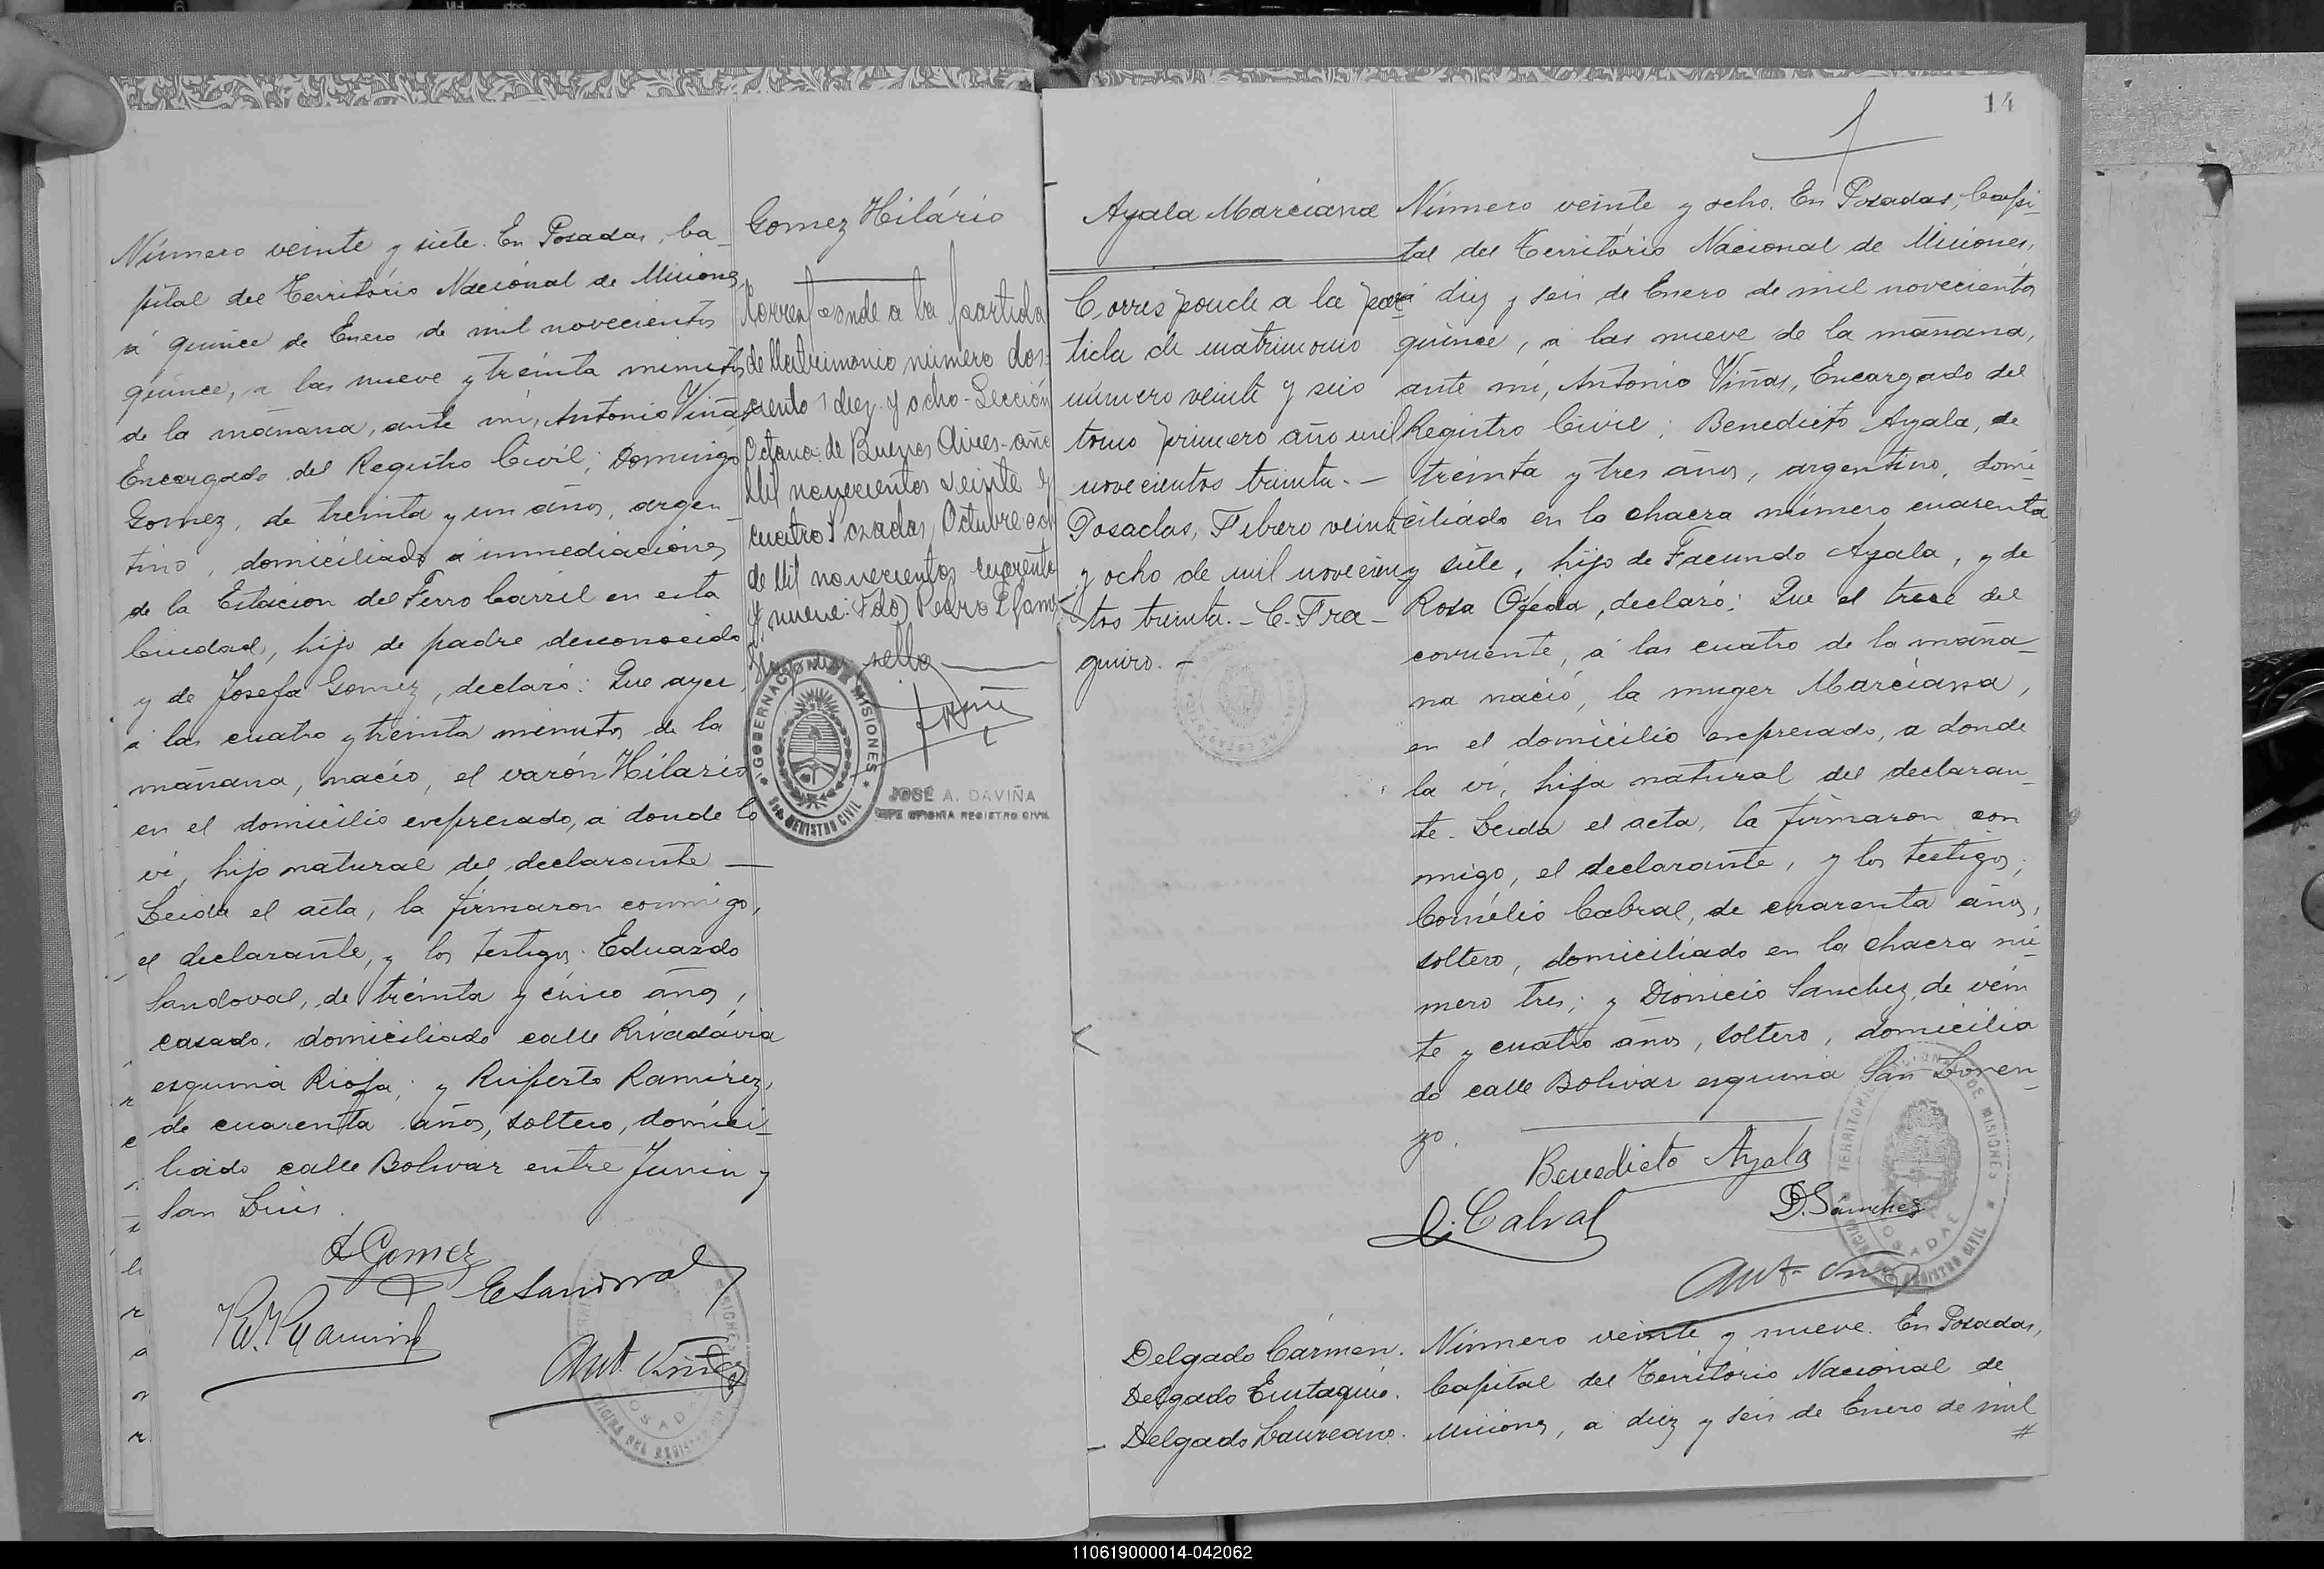 Número veinte y siete. En Posadas, Ca-
pital del Territorio Nacional de Misiones
á quince de Enero de mil novecientos
quince, a las nueve y treinta minutos
de la mañana, ante mi, Antonio Viñas
Encargado del Registro Civil; Domingo
Gomez, de treinta y un años, argen-
tino, domiciliado á inmediaciones
de la Estacion del Ferro Carril en esta
Ciudad, hijo de padre desconocido
y de Josefa Gomez, declaró: Que ayer
á las cuatro y treinta minutos de la
mañana, nació, el varón Hilario
en el domicilio expresado, á donde lo
ví, hijo natural del declarante —
Leida el acta, la firmaron conmigo,
el declarante, y los testigos. Eduardo
Sandoval, de treinta y cinco años,
casado, domiciliado calle Rivadávia
esquina Rioja; y Ruperto Ramirez,
de cuarenta años, soltero, domici-
liado calle Bolivar entre Junin y
San Luis.
D Gomez
E Sandoval
R. Ramirez
Ant. Viñas
Gomez Hilário
Corresponde a la partida
de Matrimonio número dos-
cientos diez y ocho - Sección
Octava: de Buenos Aires - año
Mil novecientos veinte y
cuatro Posadas, Octubre
de Mil novecientos cuarenta
y nueve. Fdo) Pedro
sello
GOBERNACION DE MISIONES
REGISTRO CIVIL
JOSÉ A. DAVIÑA
JEFE OFICINA REGISTRO CIVIL
14
Ayala Marciana
Corresponde a la par-
tida de matrimonio
número veinte y seis
tomo primero año mil
novecientos treinta. —
Posadas, Febrero veinte
y ocho de mil novecien-
tos treinta. — C. Fra-
guiro. —
Número veinte y ocho. En Posadas, Capi-
tal del Território Nacional de Misiones,
á diez y seis de Enero de mil novecientos
quince, á las nueve de la mañana,
ante mi, Antonio Viñas, Encargado del
Registro Civil; Benedicto Ayala, de
treinta y tres años, argentino, domi-
ciliado en la chacra número cuarenta
y siete, hijo de Facundo Ayala, y de
Rosa Ojeda, declaró: Que el trece del
corriente, á las cuatro de la maña-
na nació, la muger Marciana,
en el domicilio expresado, a donde
la ví, hija natural del declaran-
te. Leida el acta, la firmaron con
migo, el declarante, y los testigos;
Cornélio Cabral, de cuarenta años,
soltero, domiciliado en la chacra nú-
mero tres; y Dionicio Sanchez, de vein
te y cuatro años, soltero, domicilia
do calle Bolivar esquina San Loren-
zo.
Benedicto Ayala
C. Cabral
D. Sanchez
Ant. Viñas
TERRITORIO NACIONAL DE MISIONES
OFICINA DEL REGISTRO CIVIL
POSADAS
Delgado Cármen.
Delgado Eustaquio.
Delgado Laureano.
Número veinte y nueve. En Posadas,
Capital del Território Nacional de
Misiones, á diez y seis de Enero de mil
#
110619000014-042062